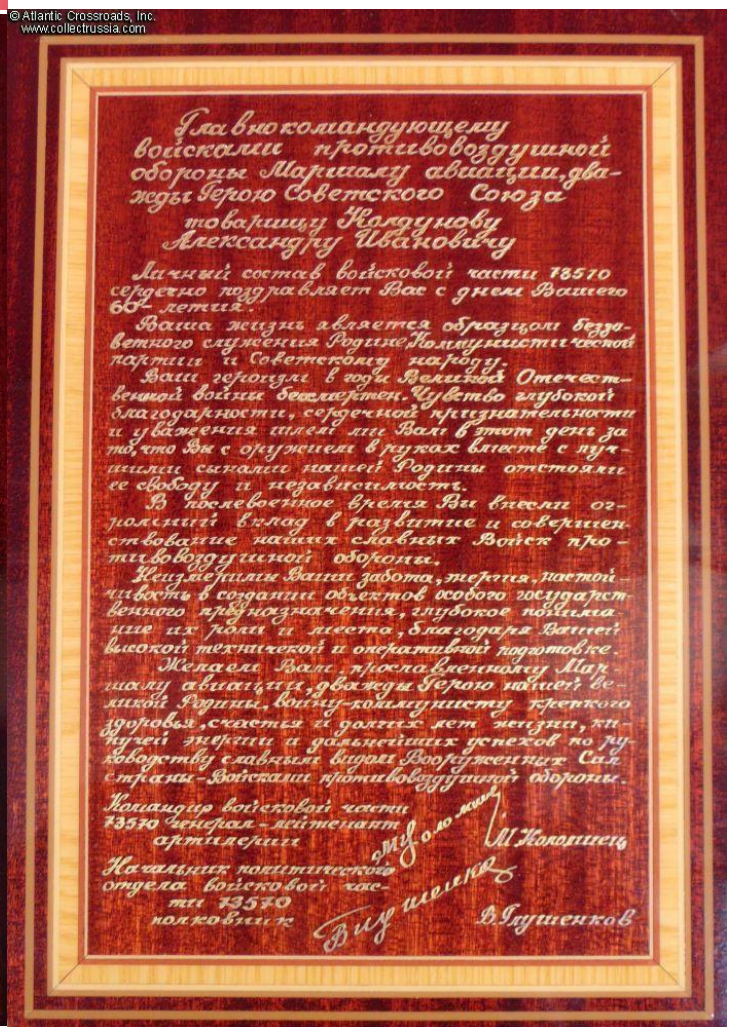 © Atlantic Crossroads, Inc.
www.collectrussia.com
Главнокомандующему
войсками противовоздушной
обороны Маршалу авиации, два-
жды Герою Советского Союза
товарищу Колдунову
Александру Ивановичу
Личный состав войсковой части 73570
сердечно поздравляет Вас с днем Вашего
60-летия.
Ваша жизнь является образцом безза-
ветного служения Родине, Коммунистической
партии и Советскому народу.
Ваш героизм в годы Великой Отечест-
венной войны бессмертен. Чувство глубокой
благодарности, сердечной признательности
и уважения шлем мы Вам в этот день за
то, что Вы с оружием в руках вместе с луч-
шими сынами нашей Родины отстояли
ее свободу и независимость.
В послевоенное время Вы внесли ог-
ромный вклад в развитие и совершен-
ствование наших славных Войск про-
тивовоздушной обороны.
Неизмеримы Ваши забота, энергия, настой-
чивость в создании объектов особого государст-
венного предназначения, глубокое понима-
ние их роли и места, благодаря Вашей
высокой технической и оперативной подготовке.
Желаем Вам, прославленному Мар-
шалу авиации, дважды Герою нашей ве-
ликой Родины, воину-коммунисту крепкого
здоровья, счастья и долгих лет жизни, ки-
пучей энергии и дальнейших успехов по ру-
ководству славным видом Вооруженных Сил
страны - Войсками противовоздушной обороны.
Командир войсковой части
73570 генерал-лейтенант
артилерии
М Коломиец
Начальник политического
отдела войсковой час-
ти 73570
полковник
В. Глушенков